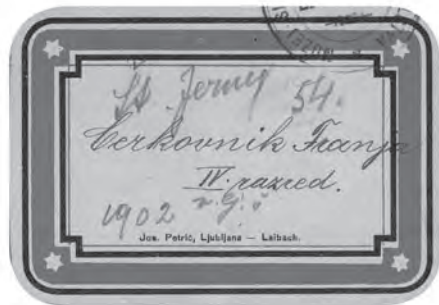 Št Jernej 54.
Cerkovnik Franja
IV. razred.
1902
Jos. Petrič, Ljubljana — Laibach.